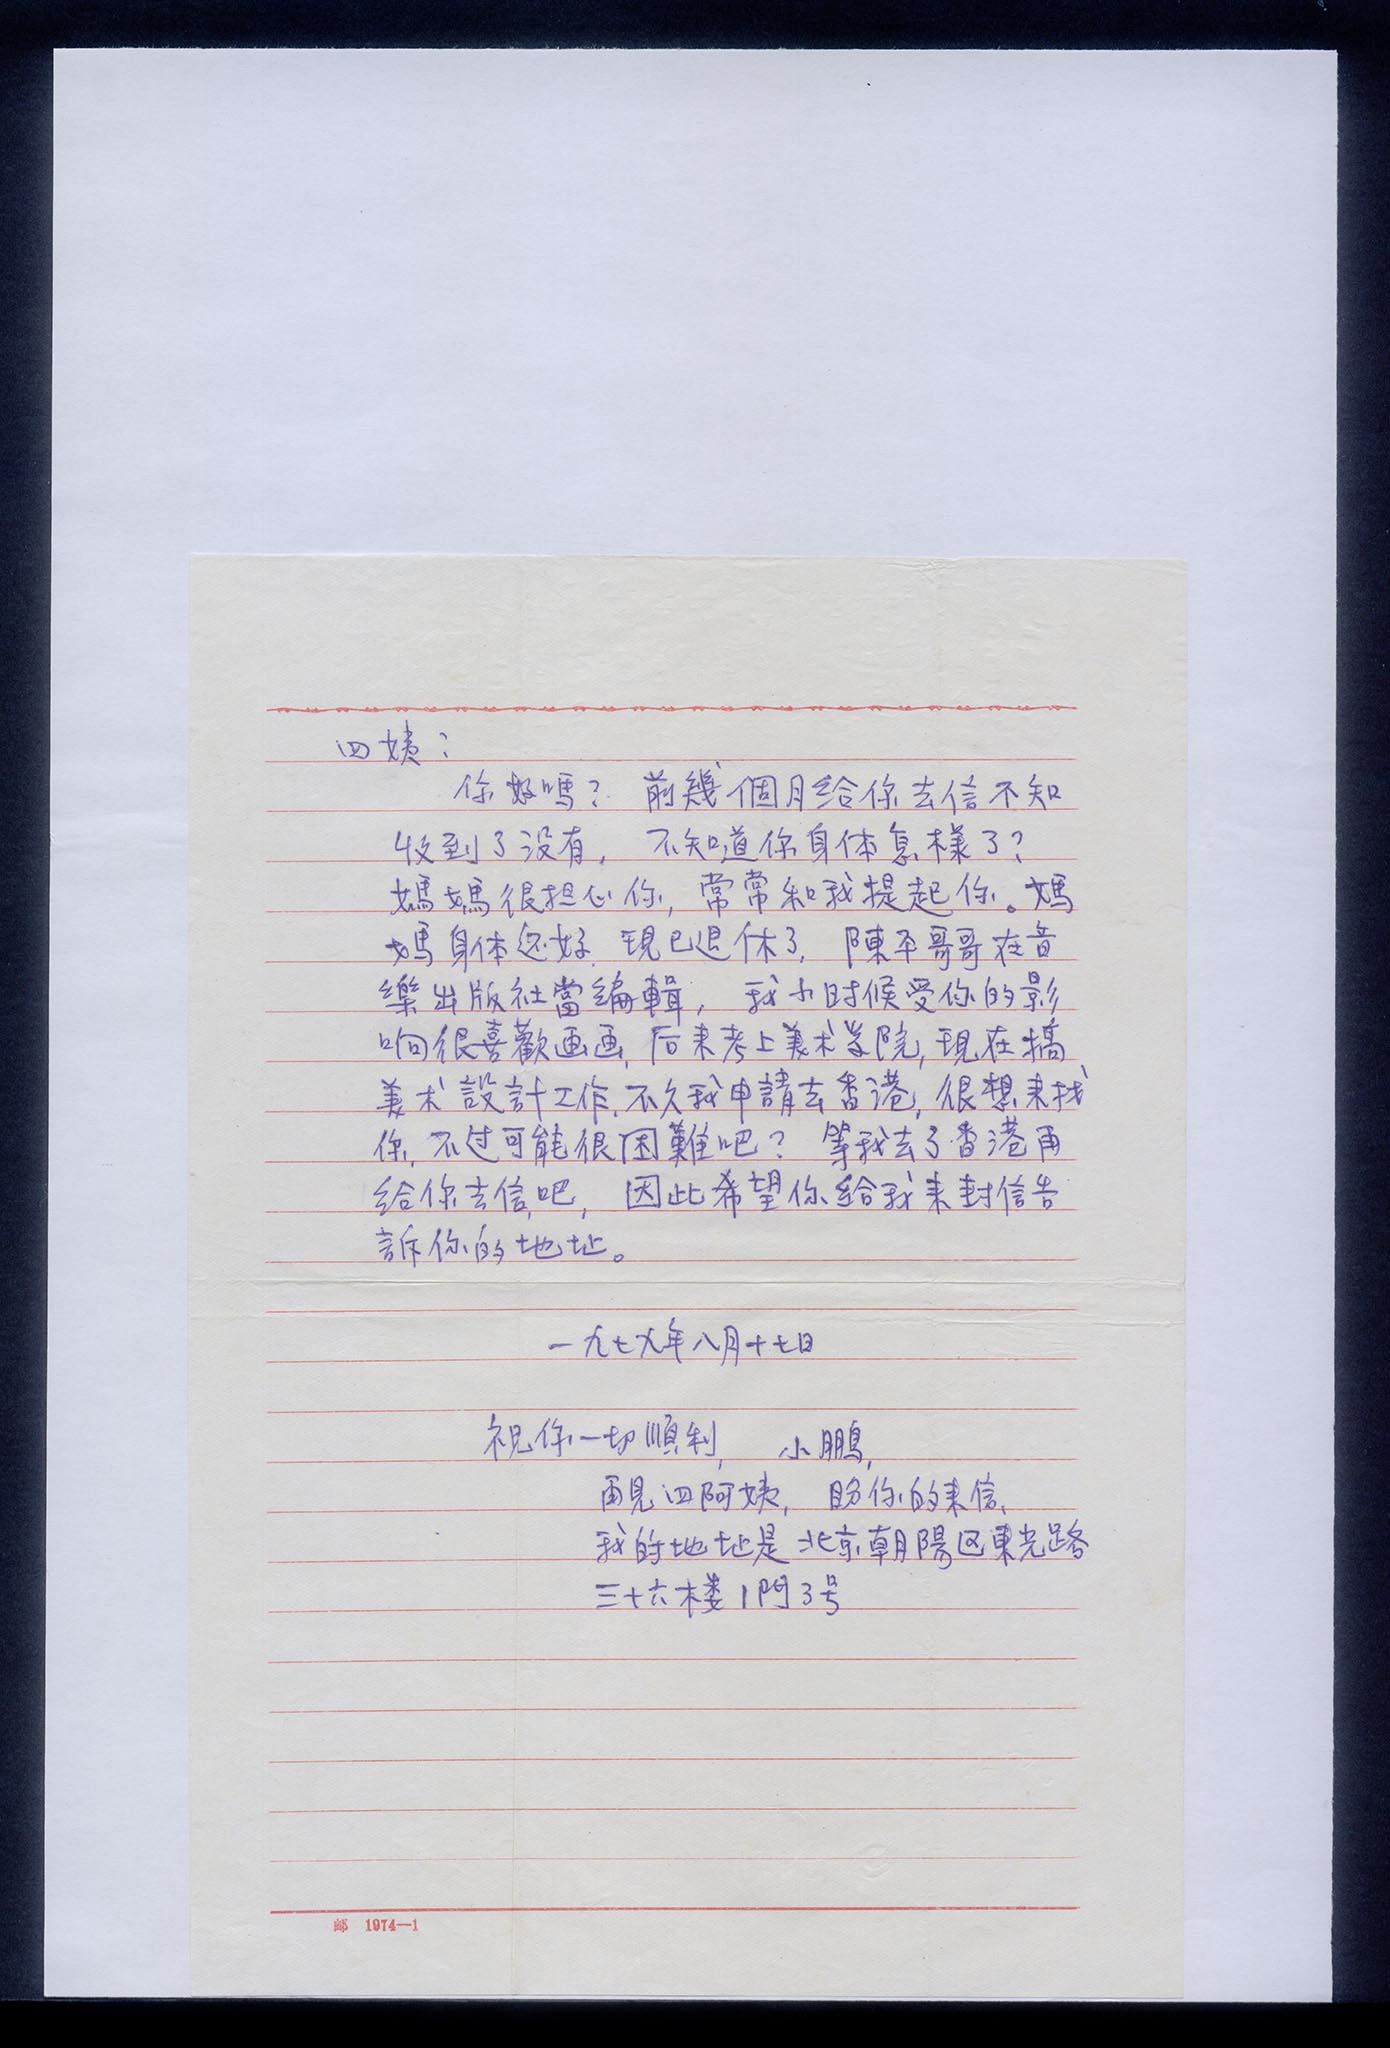 四姨：
你好嗎？ 前幾個月給你去信不知
收到了没有， 不知道你身体怎樣了？
媽媽很担心你，常常和我提起你。媽
媽身体还好.現已退休了，陳平哥哥在音
樂出版社當編輯， 我小时候受你的影
响很喜歡画画，后来考上美术学院，現在搞
美术設計工作.不久我申請去香港，很想来找
你，不过可能很困難吧？ 等我去了香港再
給你去信吧， 因此希望你給我来封信告
訴你的地址。
一九七九年八月十七日
祝你一切順利， 小鵬，
再見四阿姨， 盼你的来信、
我的地址是北京朝陽区東光路
三十六楼1門3号
邮 1974—1